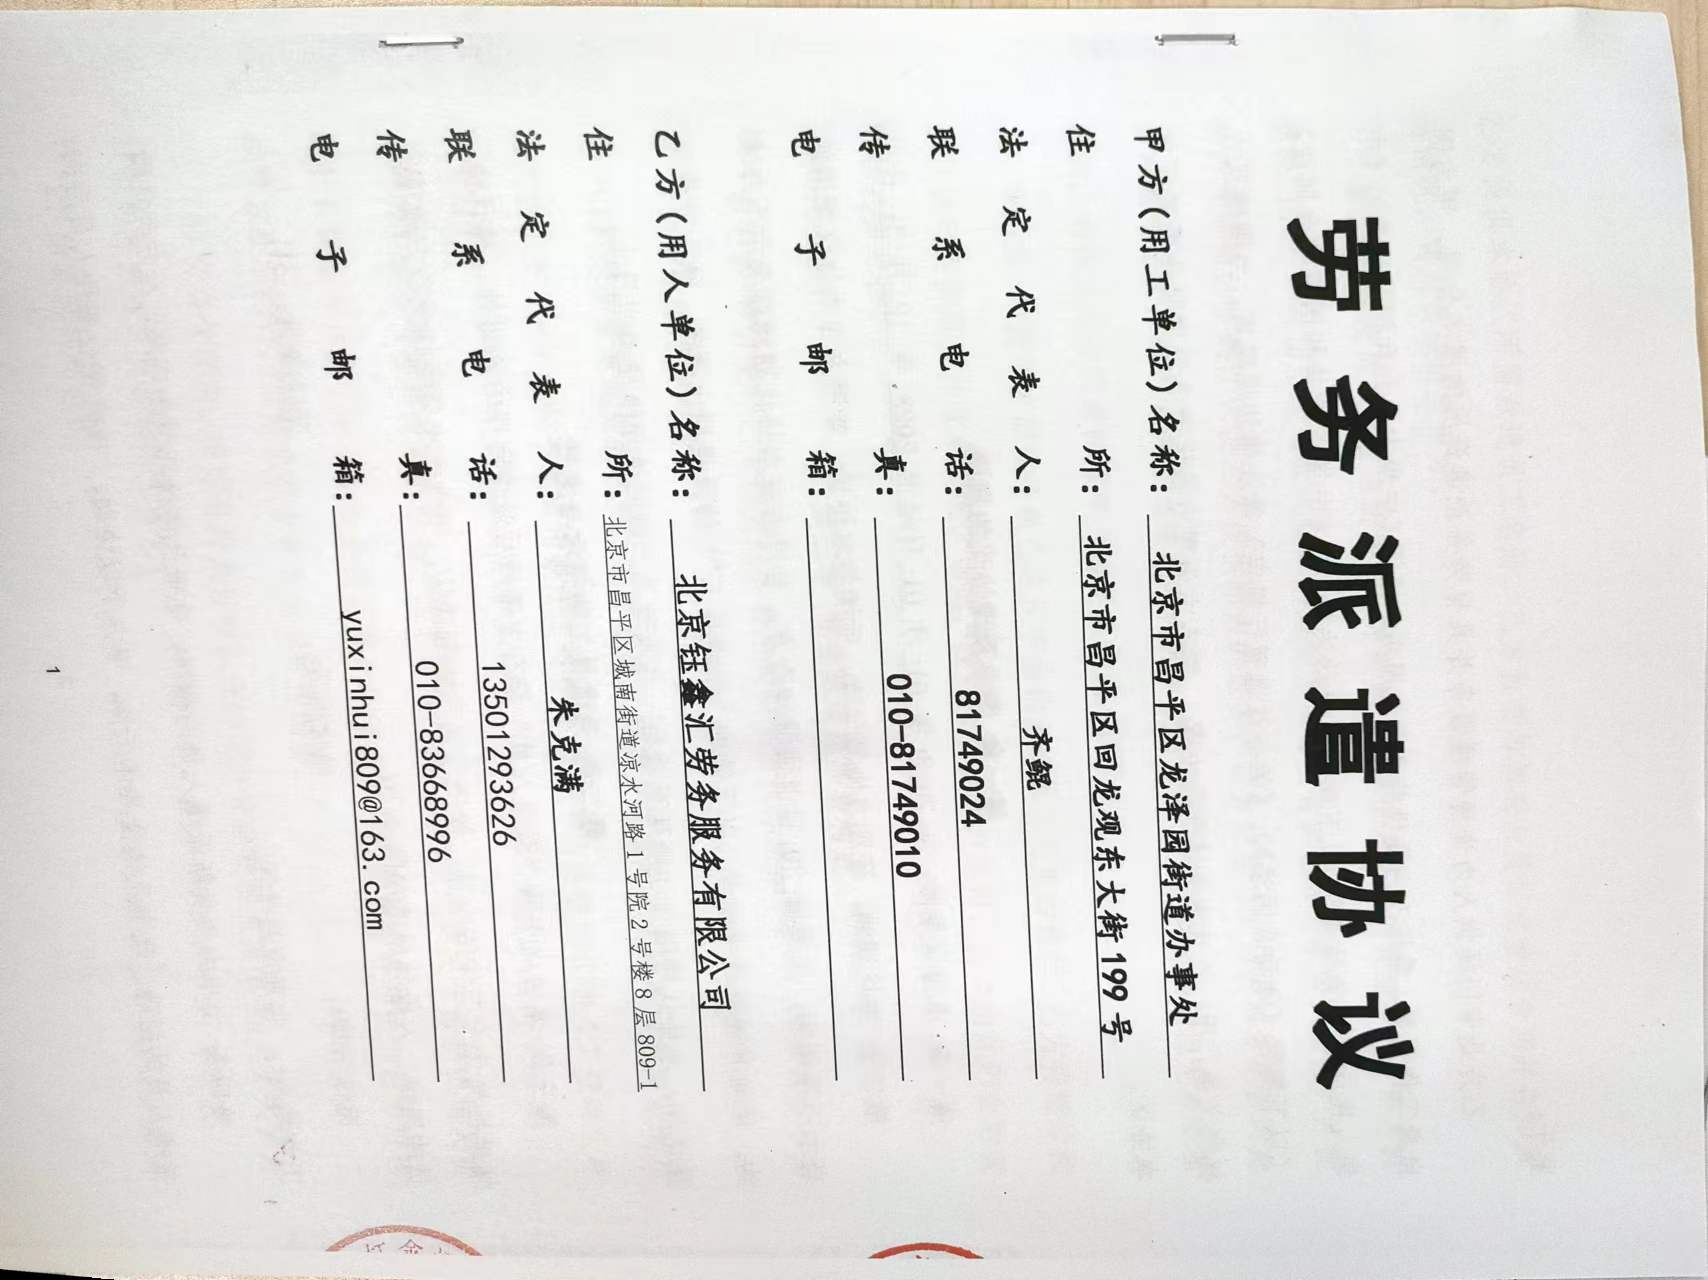 劳务派遣协议
甲方(用工单位)名称: 北京市昌平区龙泽园街道办事处
住所: 北京市昌平区回龙观东大街199号
法定代表人: 齐鲲
联系电话: 81749024
传真: 010-81749010
电子邮箱:
乙方(用人单位)名称: 北京钰鑫汇劳务服务有限公司
住所: 北京市昌平区城南街道凉水河路1号院2号楼8层809-1
法定代表人: 朱克满
联系电话: 13501293626
传真: 010-83668996
电子邮箱: yuxinhui809@163.com
1